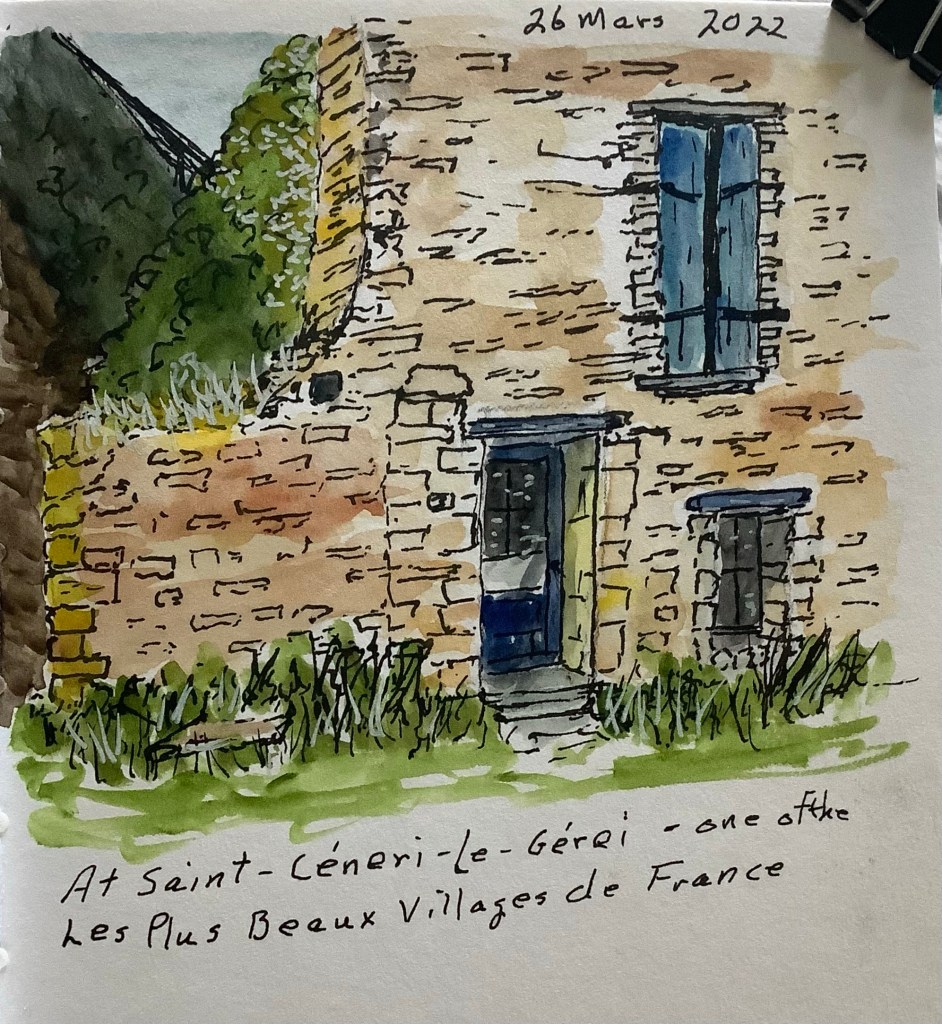 26 Mars 2022
At Saint-Céneri-Le-Gérei - one of the
Les Plus Beaux Villages de France